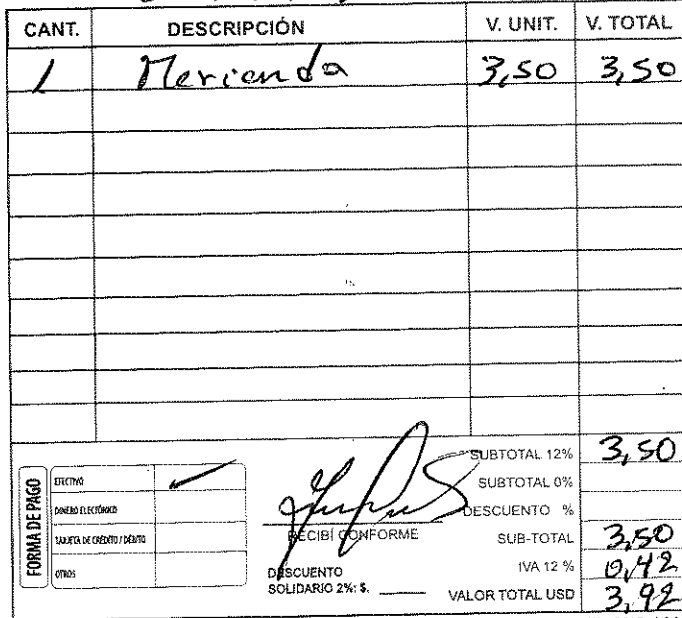 CANT. DESCRIPCIÓN V. UNIT. V. TOTAL
1 Merienda 3,50 3,50
FORMA DE PAGO
EFECTIVO
DINERO ELECTRÓNICO
TARJETA DE CRÉDITO / DÉBITO
OTROS
RECIBÍ CONFORME
DESCUENTO
SOLIDARIO 2%: $.
SUBTOTAL 12% 3,50
SUBTOTAL 0%
DESCUENTO %
SUB-TOTAL 3,50
IVA 12 % 0,42
VALOR TOTAL USD 3,92